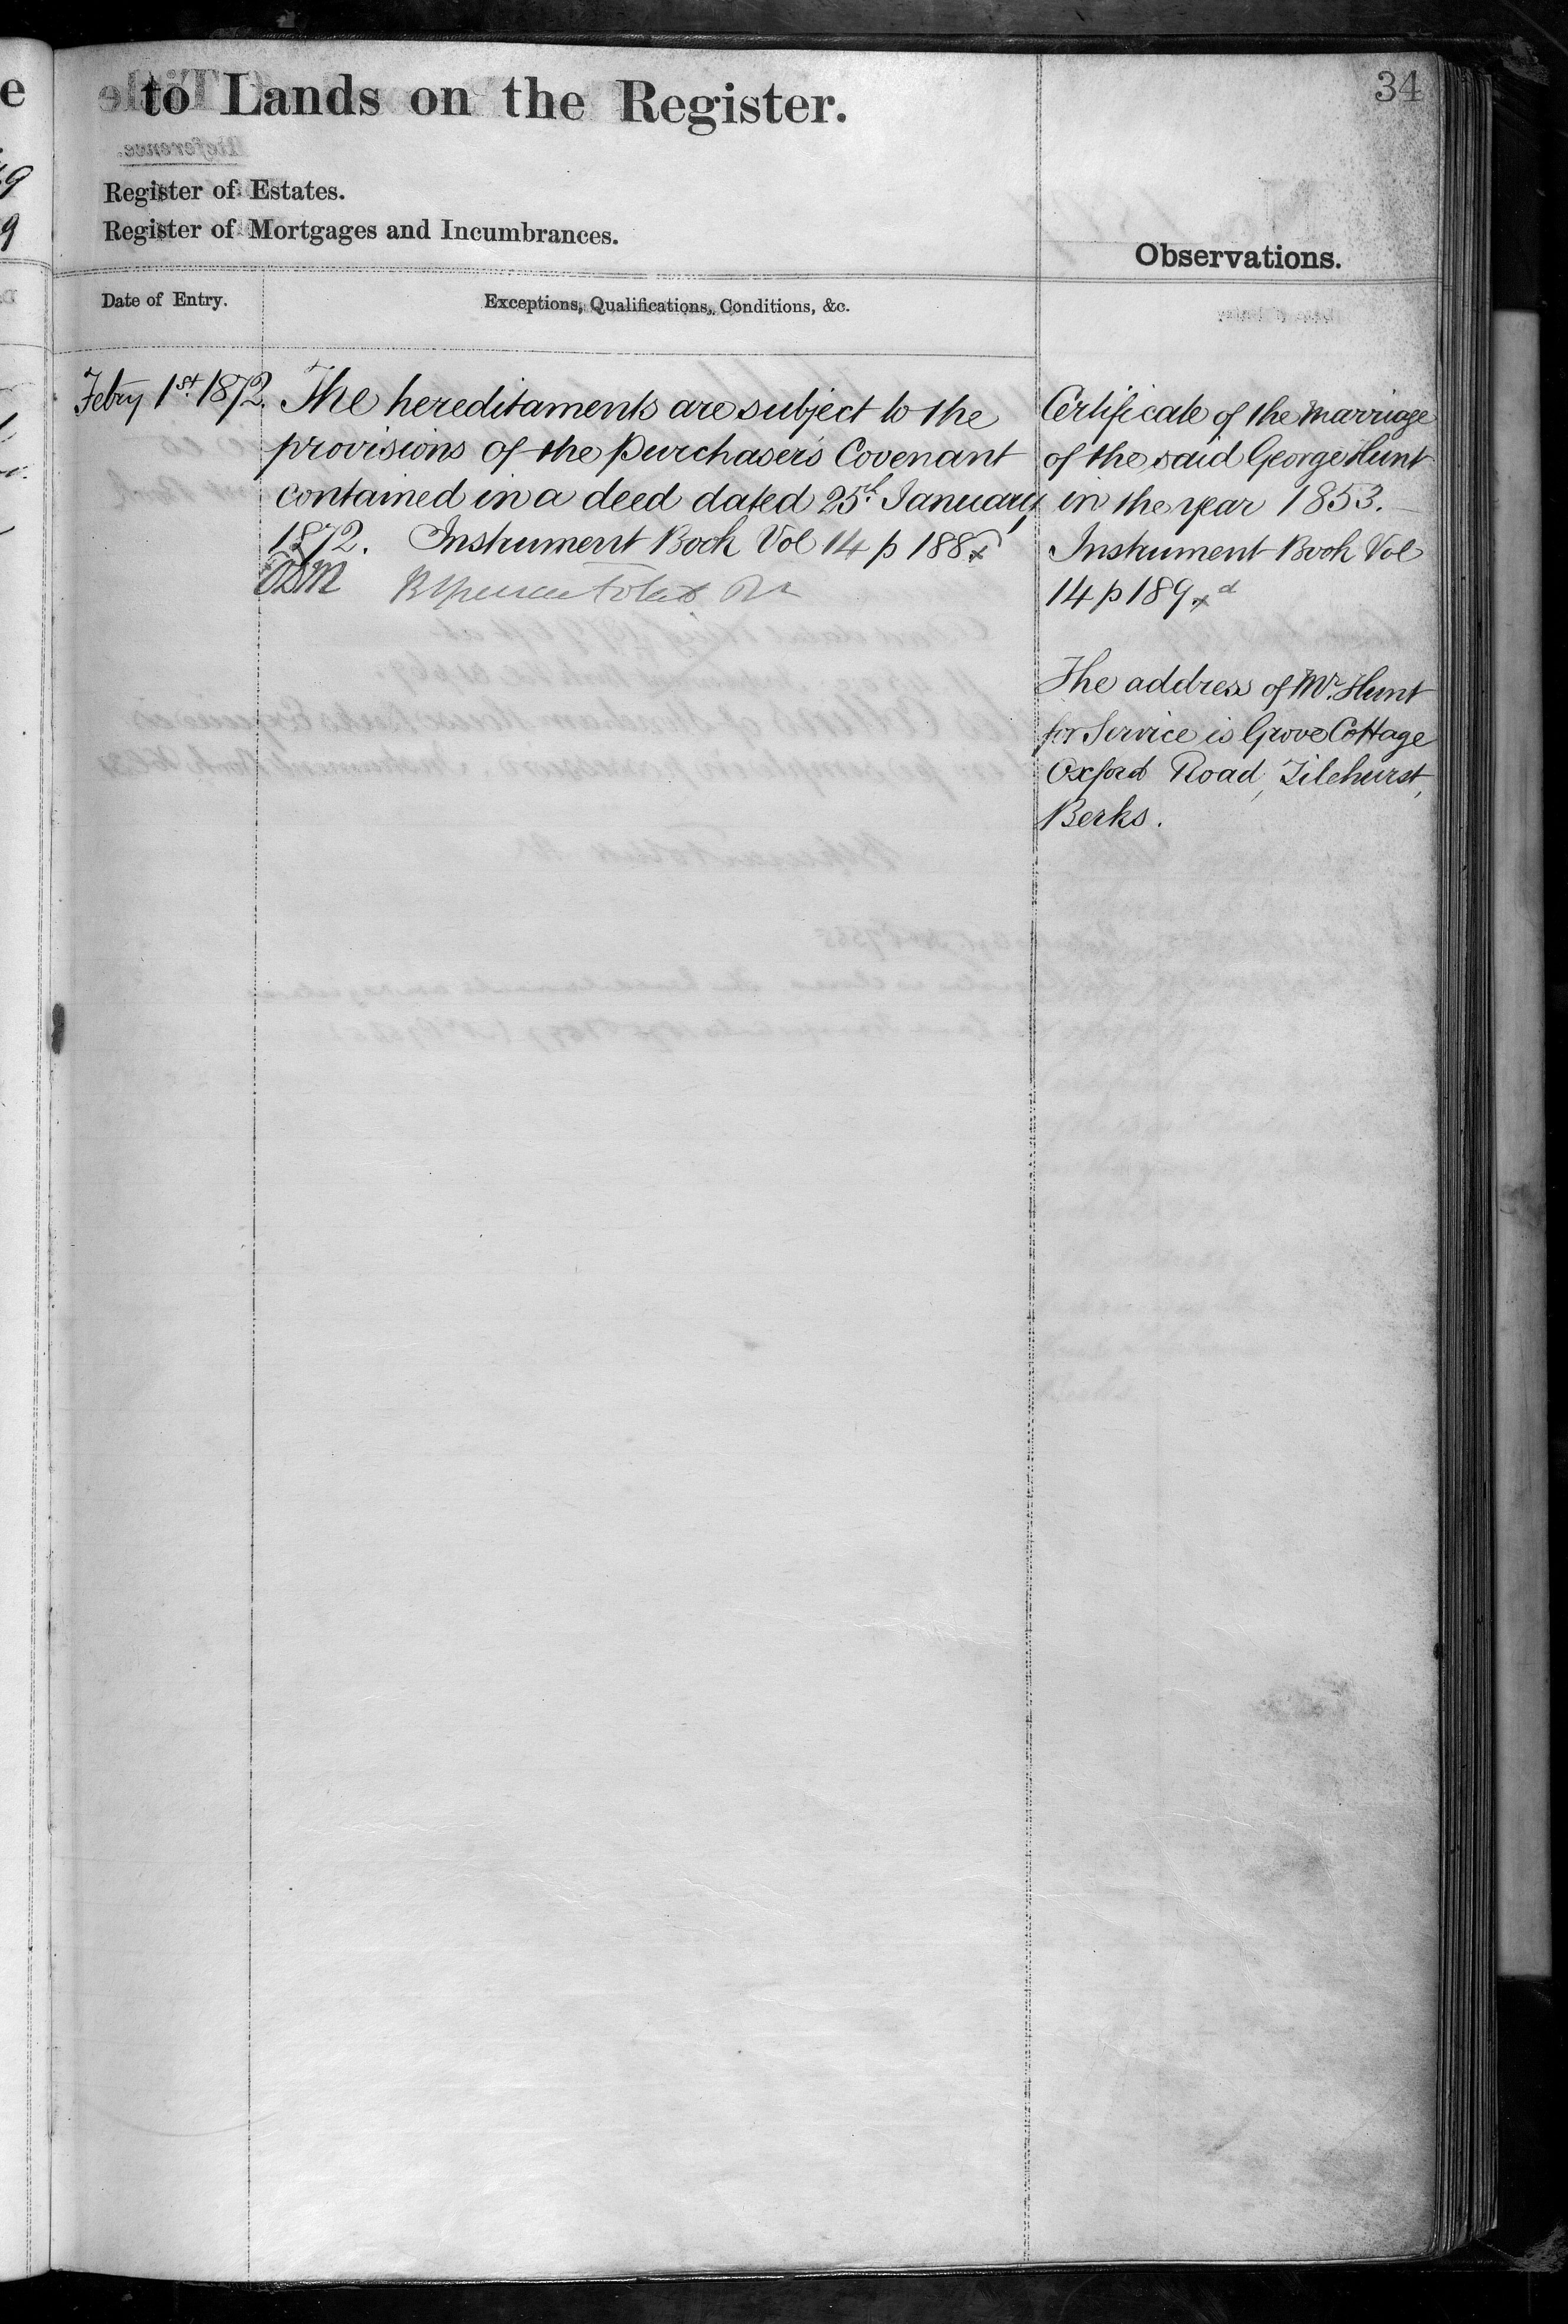 34
to Lands on the Register.
Register of Estates.
Register of Mortgages and Incumbrances.
Observations.
Date of Entry.
Exceptions, Qualifications, Conditions, &c.
Febry 1st. 1872.
The hereditaments are subject to the
provisions of the purchaser's Covenant
contained in a deed dated 25th January
1872. Instrument Book Vol 14 p 188
Certificate of the Marriage
of the said George Hunt
in the year 1853.
Instrument Book Vol
14 p 189
The address of Mr. Hunt
for Service is Grove Cottage
Oxford Road, Tilehurst,
Berks.